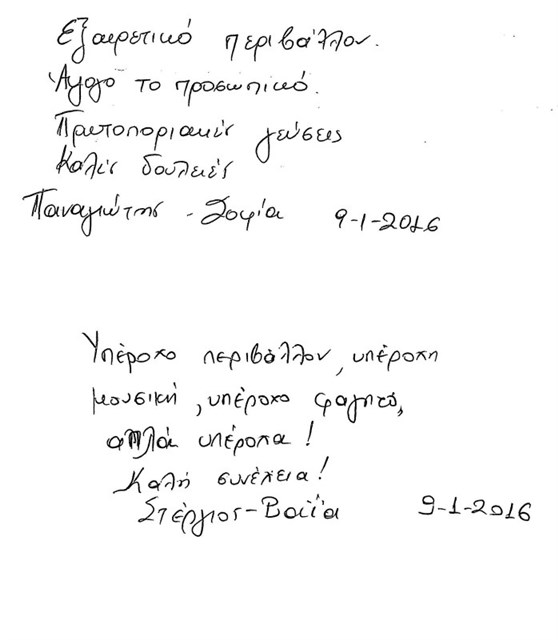 Εξαιρετικό περιβάλλον.
Άψογο το προσωπικό.
Πρωτοποριακές γεύσεις
Καλές δουλειές
Παναγιώτης - Σοφία 9-1-2016
Υπέροχο περιβάλλον, υπέροχη
μουσική, υπέροχο φαγητό,
απλά υπέροχα!
Καλή συνέχεια!
Στέργιος-Βάϊα 9-1-2016